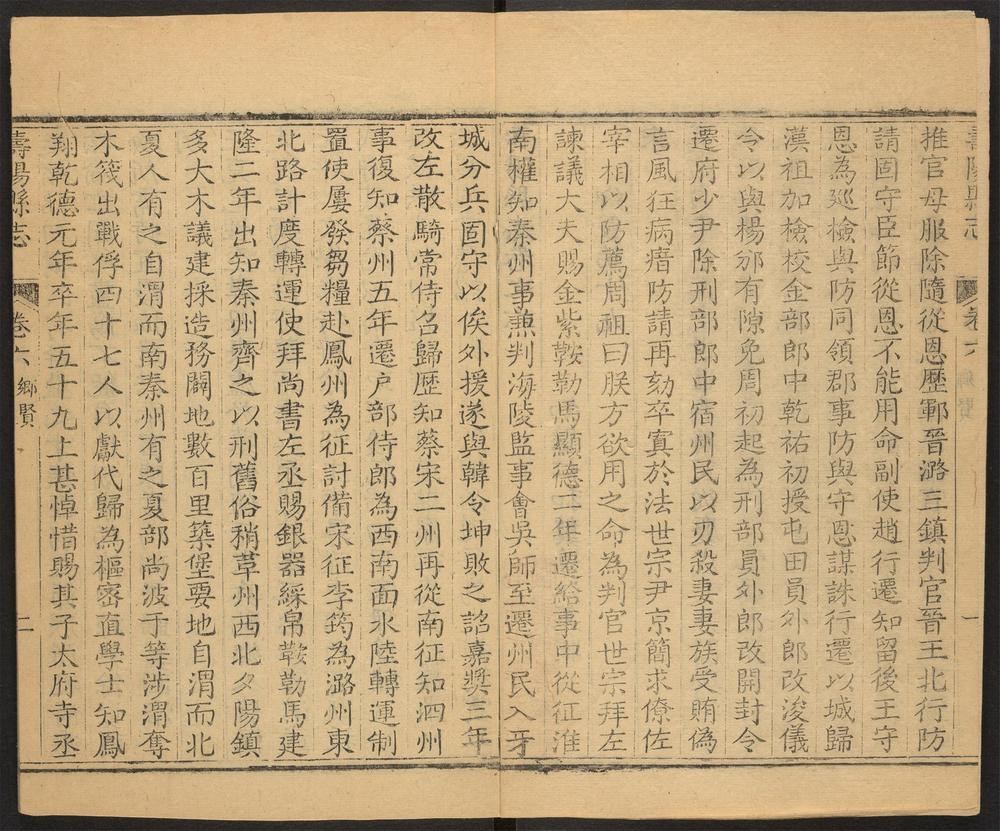 壽陽縣志
卷六
鄉賢
一
推官母服除隨從恩歷鄆晉潞三鎮判官晉王北行防
請固守臣節從恩不能用命副使趙行遷知留後王守
恩為廵檢與防同領郡事防與守恩謀誅行遷以城歸
漢祖加檢校金部郎中乾祐初授屯田員外郎改浚儀
令以與楊邠有隙免周初起為刑部員外郎改開封令
遷府少尹除刑部郎中宿州民以刃殺妻妻族受賄偽
言風狂病瘖防請再劾卒寘於法世宗尹京簡求僚佐
宰相以防薦周祖曰朕方欲用之命為判官世宗拜左
諫議大夫賜金紫鞍勒馬顯德二年遷給事中從征淮
南權知泰州事兼判海陵監事會吳師至遷州民入牙
城分兵固守以俟外援遂與韓令坤敗之詔嘉獎三年
改左散騎常侍召歸歷知蔡宋二州再從南征知泗州
事復知蔡州五年遷户部侍郎為西南面水陸轉運制
置使屢發芻糧赴鳳州為征討備宋征李筠為潞州東
北路計度轉運使拜尚書左丞賜銀器綵帛鞍勒馬建
隆二年出知秦州齊之以刑舊俗稍革州西北夕陽鎮
多大木議建採造務闢地數百里築堡要地自渭而北
夏人有之自渭而南秦州有之夏部尚波于等涉渭奪
木筏出戰俘四十七人以獻代歸為樞密直學士知鳳
翔乾德元年卒年五十九上甚悼惜賜其子太府寺丞
壽陽縣志
卷六
鄉賢
二